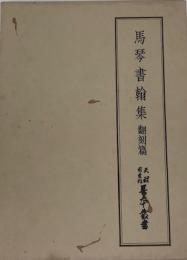 馬琴書翰集 翻刻篇
天理図書館善本叢書